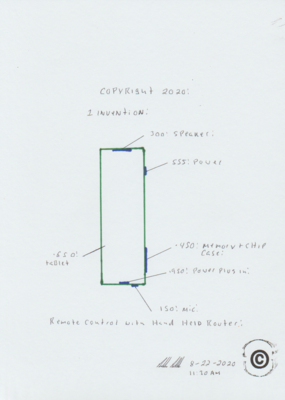 COPYRIGHT 2020:
1 INVENTION:
300: SPEAKER:
555: POWER
.650:
TABLET
.450: MEMORY CHIP
CASE:
.420: POWER PLUG IN:
150: MIC:
REMOTE CONTROL WITH HAND HELD ROUTER:
8-22-2020
11:20 AM
©